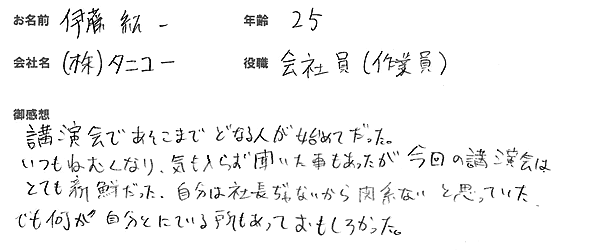 お名前 伊藤 紘一 年齢 25
会社名 (株)タニコー 役職 会社員(作業員)
御感想
講演会であそこまで どなる人が始めてだった。
いつもねむくなり、気も入らず聞いた事もあったが 今回の講演会は
とても新鮮だった。自分は社長ぢゃないから関係ないと思っていた、
でも何が自分とにている所もあっておもしろかった。